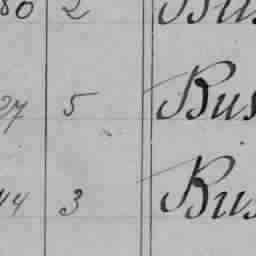 80 2 Bus
27 5 Bus
44 3 Bus